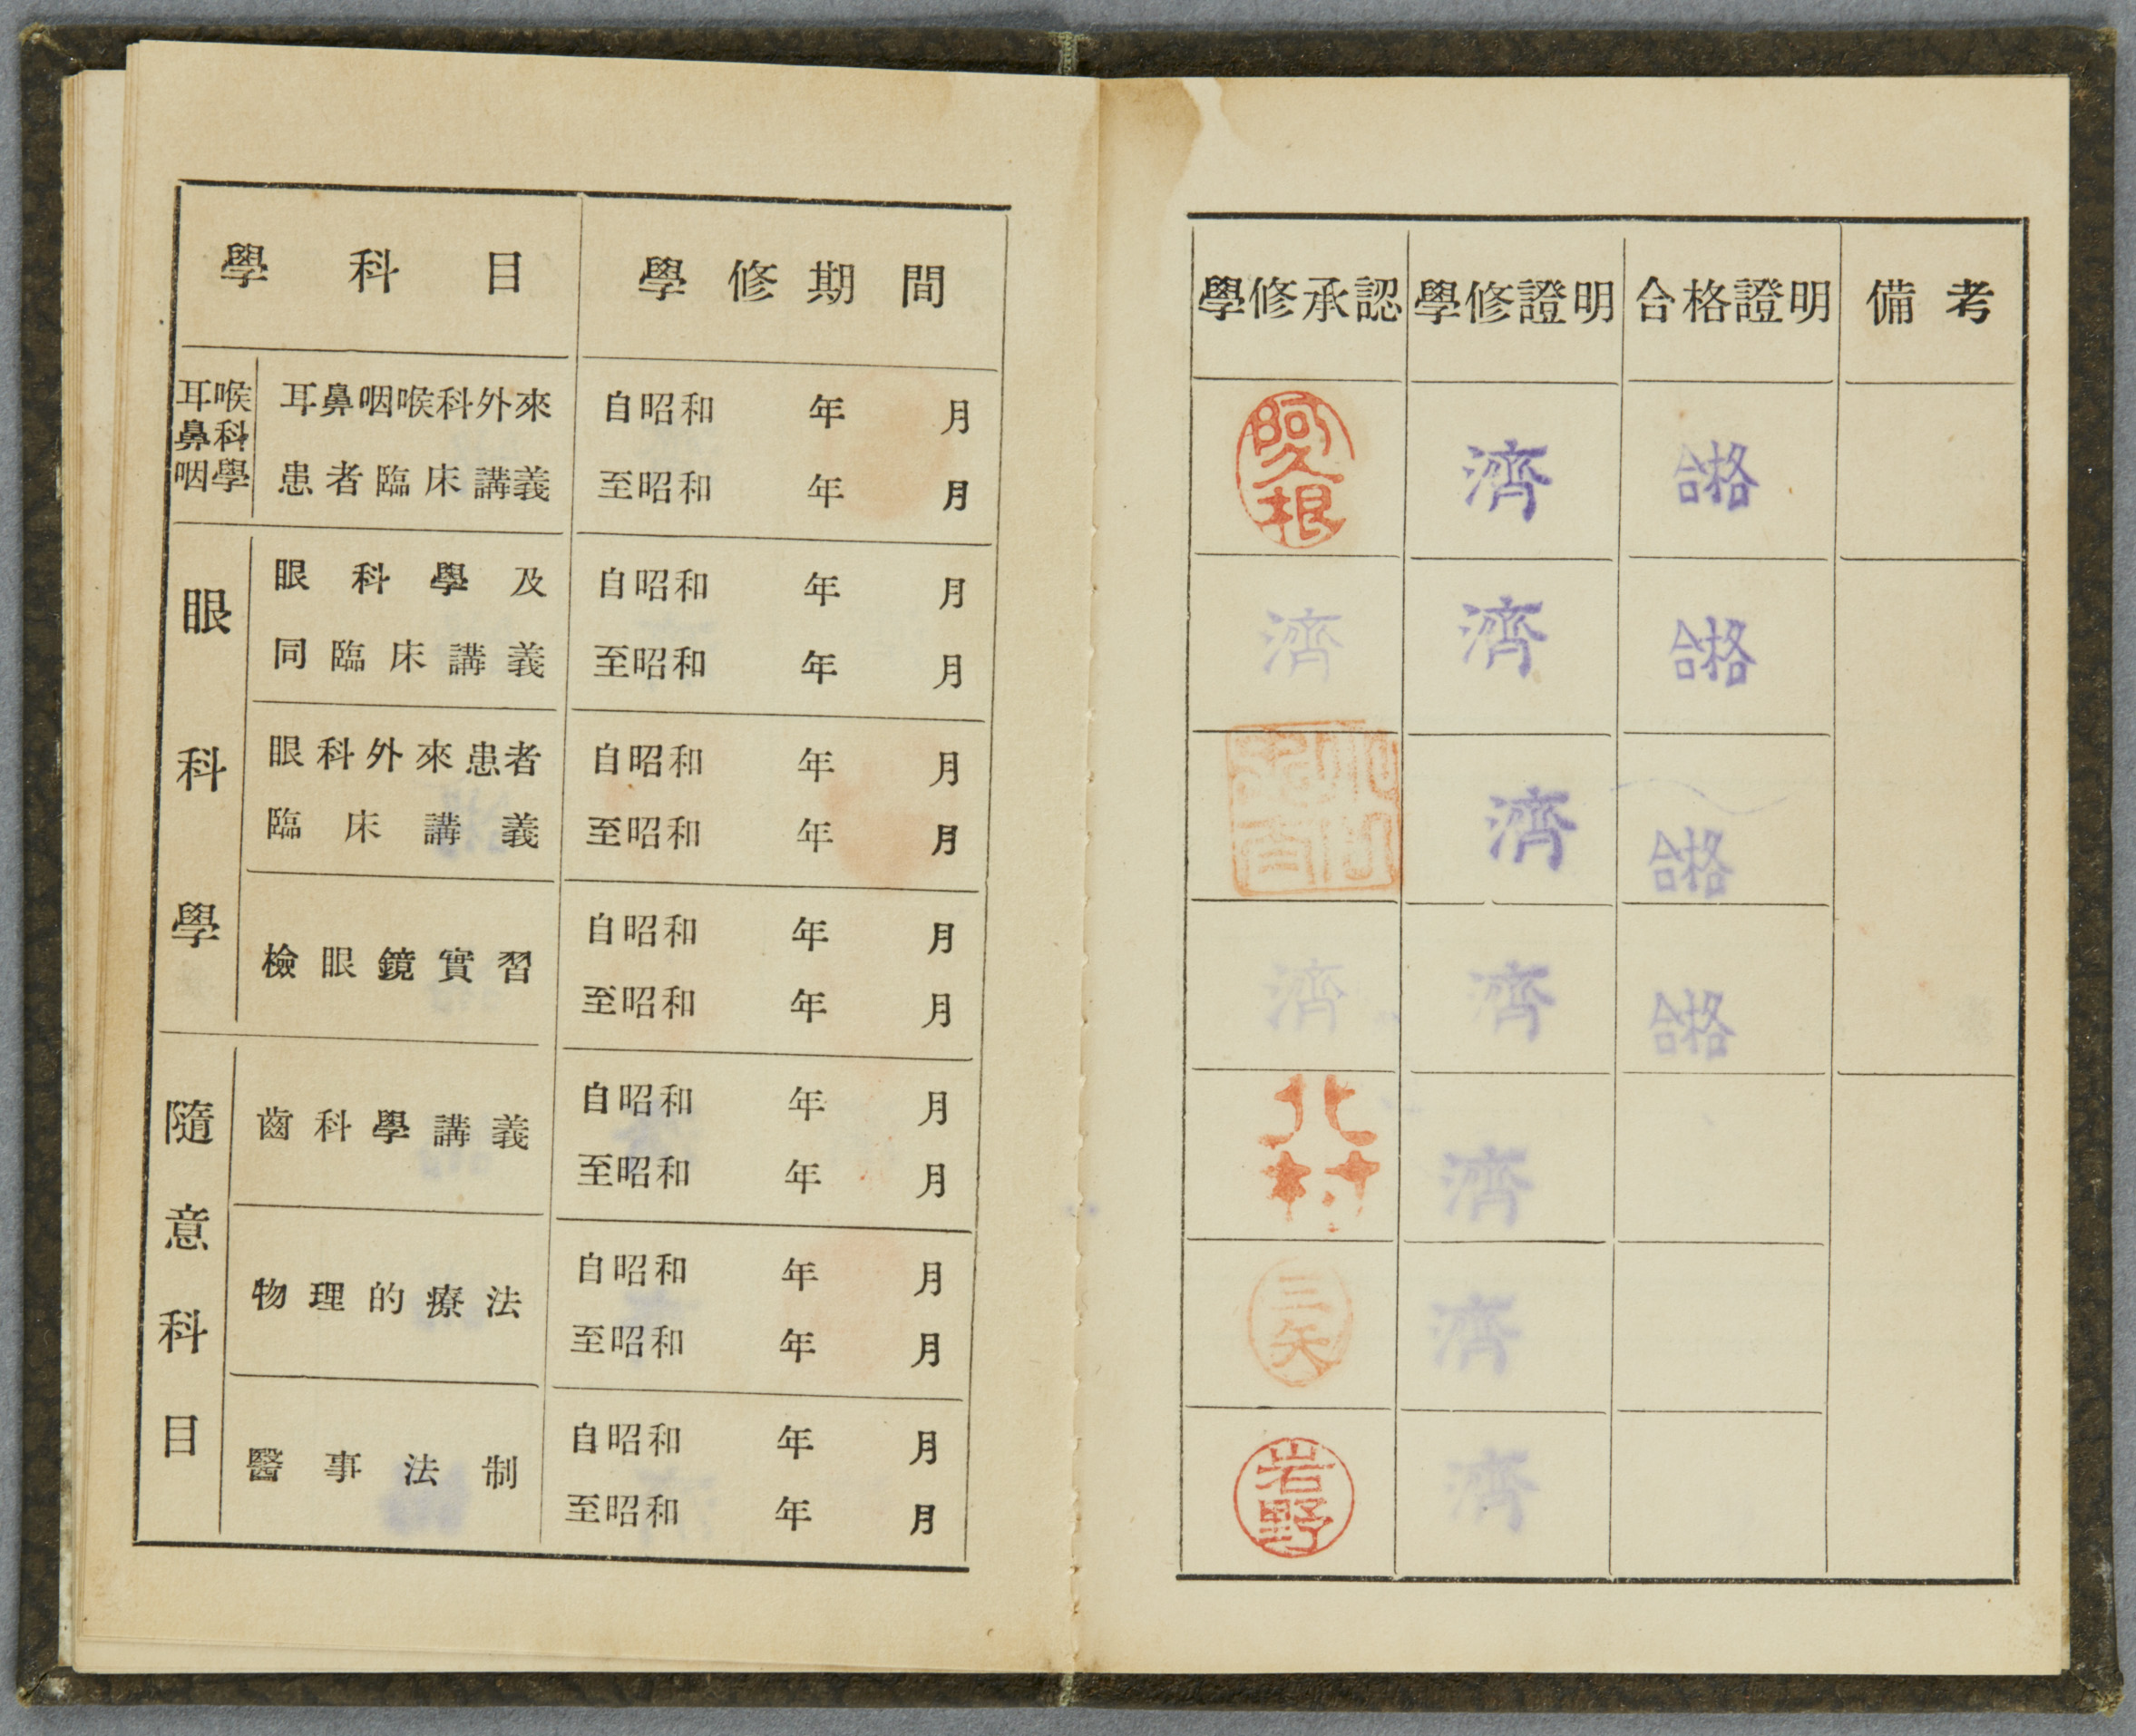 學科目 學修期間
耳鼻咽喉科學
耳鼻咽喉科外來
患者臨床講義
自昭和 年 月
至昭和 年 月
眼科學
眼科學及
同臨床講義
自昭和 年 月
至昭和 年 月
眼科外來患者
臨床講義
自昭和 年 月
至昭和 年 月
檢眼鏡實習
自昭和 年 月
至昭和 年 月
隨意科目
齒科學講義
自昭和 年 月
至昭和 年 月
物理的療法
自昭和 年 月
至昭和 年 月
醫事法制
自昭和 年 月
至昭和 年 月
學修承認 學修證明 合格證明 備考
阿久根 濟 合格
濟 濟 合格
濟 合格
濟 濟 合格
北村 濟
三矢 濟
岩野 濟